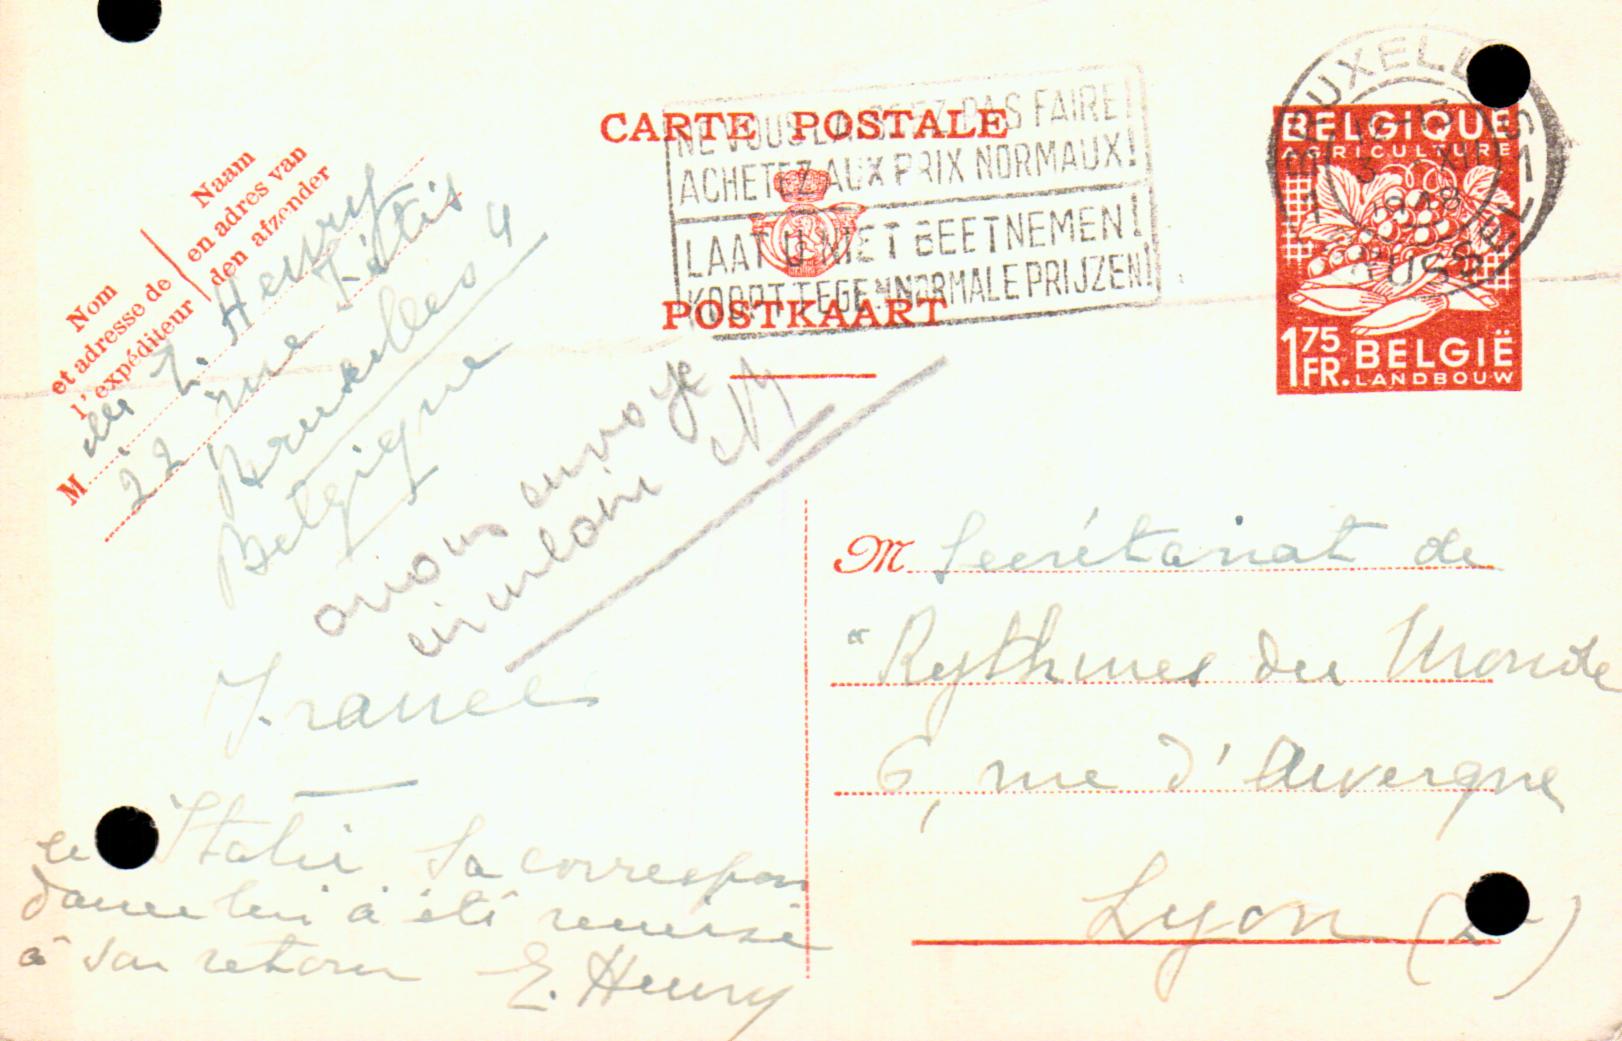 CARTE POSTALE
POSTKAART
NE VOUS LAISSEZ PAS FAIRE!
ACHETEZ AUX PRIX NORMAUX!
LAAT U NIET BEETNEMEN!
KOOPT TEGEN NORMALE PRIJZEN!
BRUXELLES 1
1948
BRUSSEL
BELGIQUE
AGRICULTURE
1 75 FR.
BELGIË
LANDBOUW
Naam
en adres van
den afzender
Nom
et adresse de
l'expéditeur
M elle E. Henry
22 rue Fétis
Bruxelles 4
Belgique
avions envoyé
circulaire
France
M Secrétariat de
"Rythmes du Monde
6, rue d'Auvergne
Lyon
Italie Sa correspon
dance lui a été remise
à son retour E. Henry